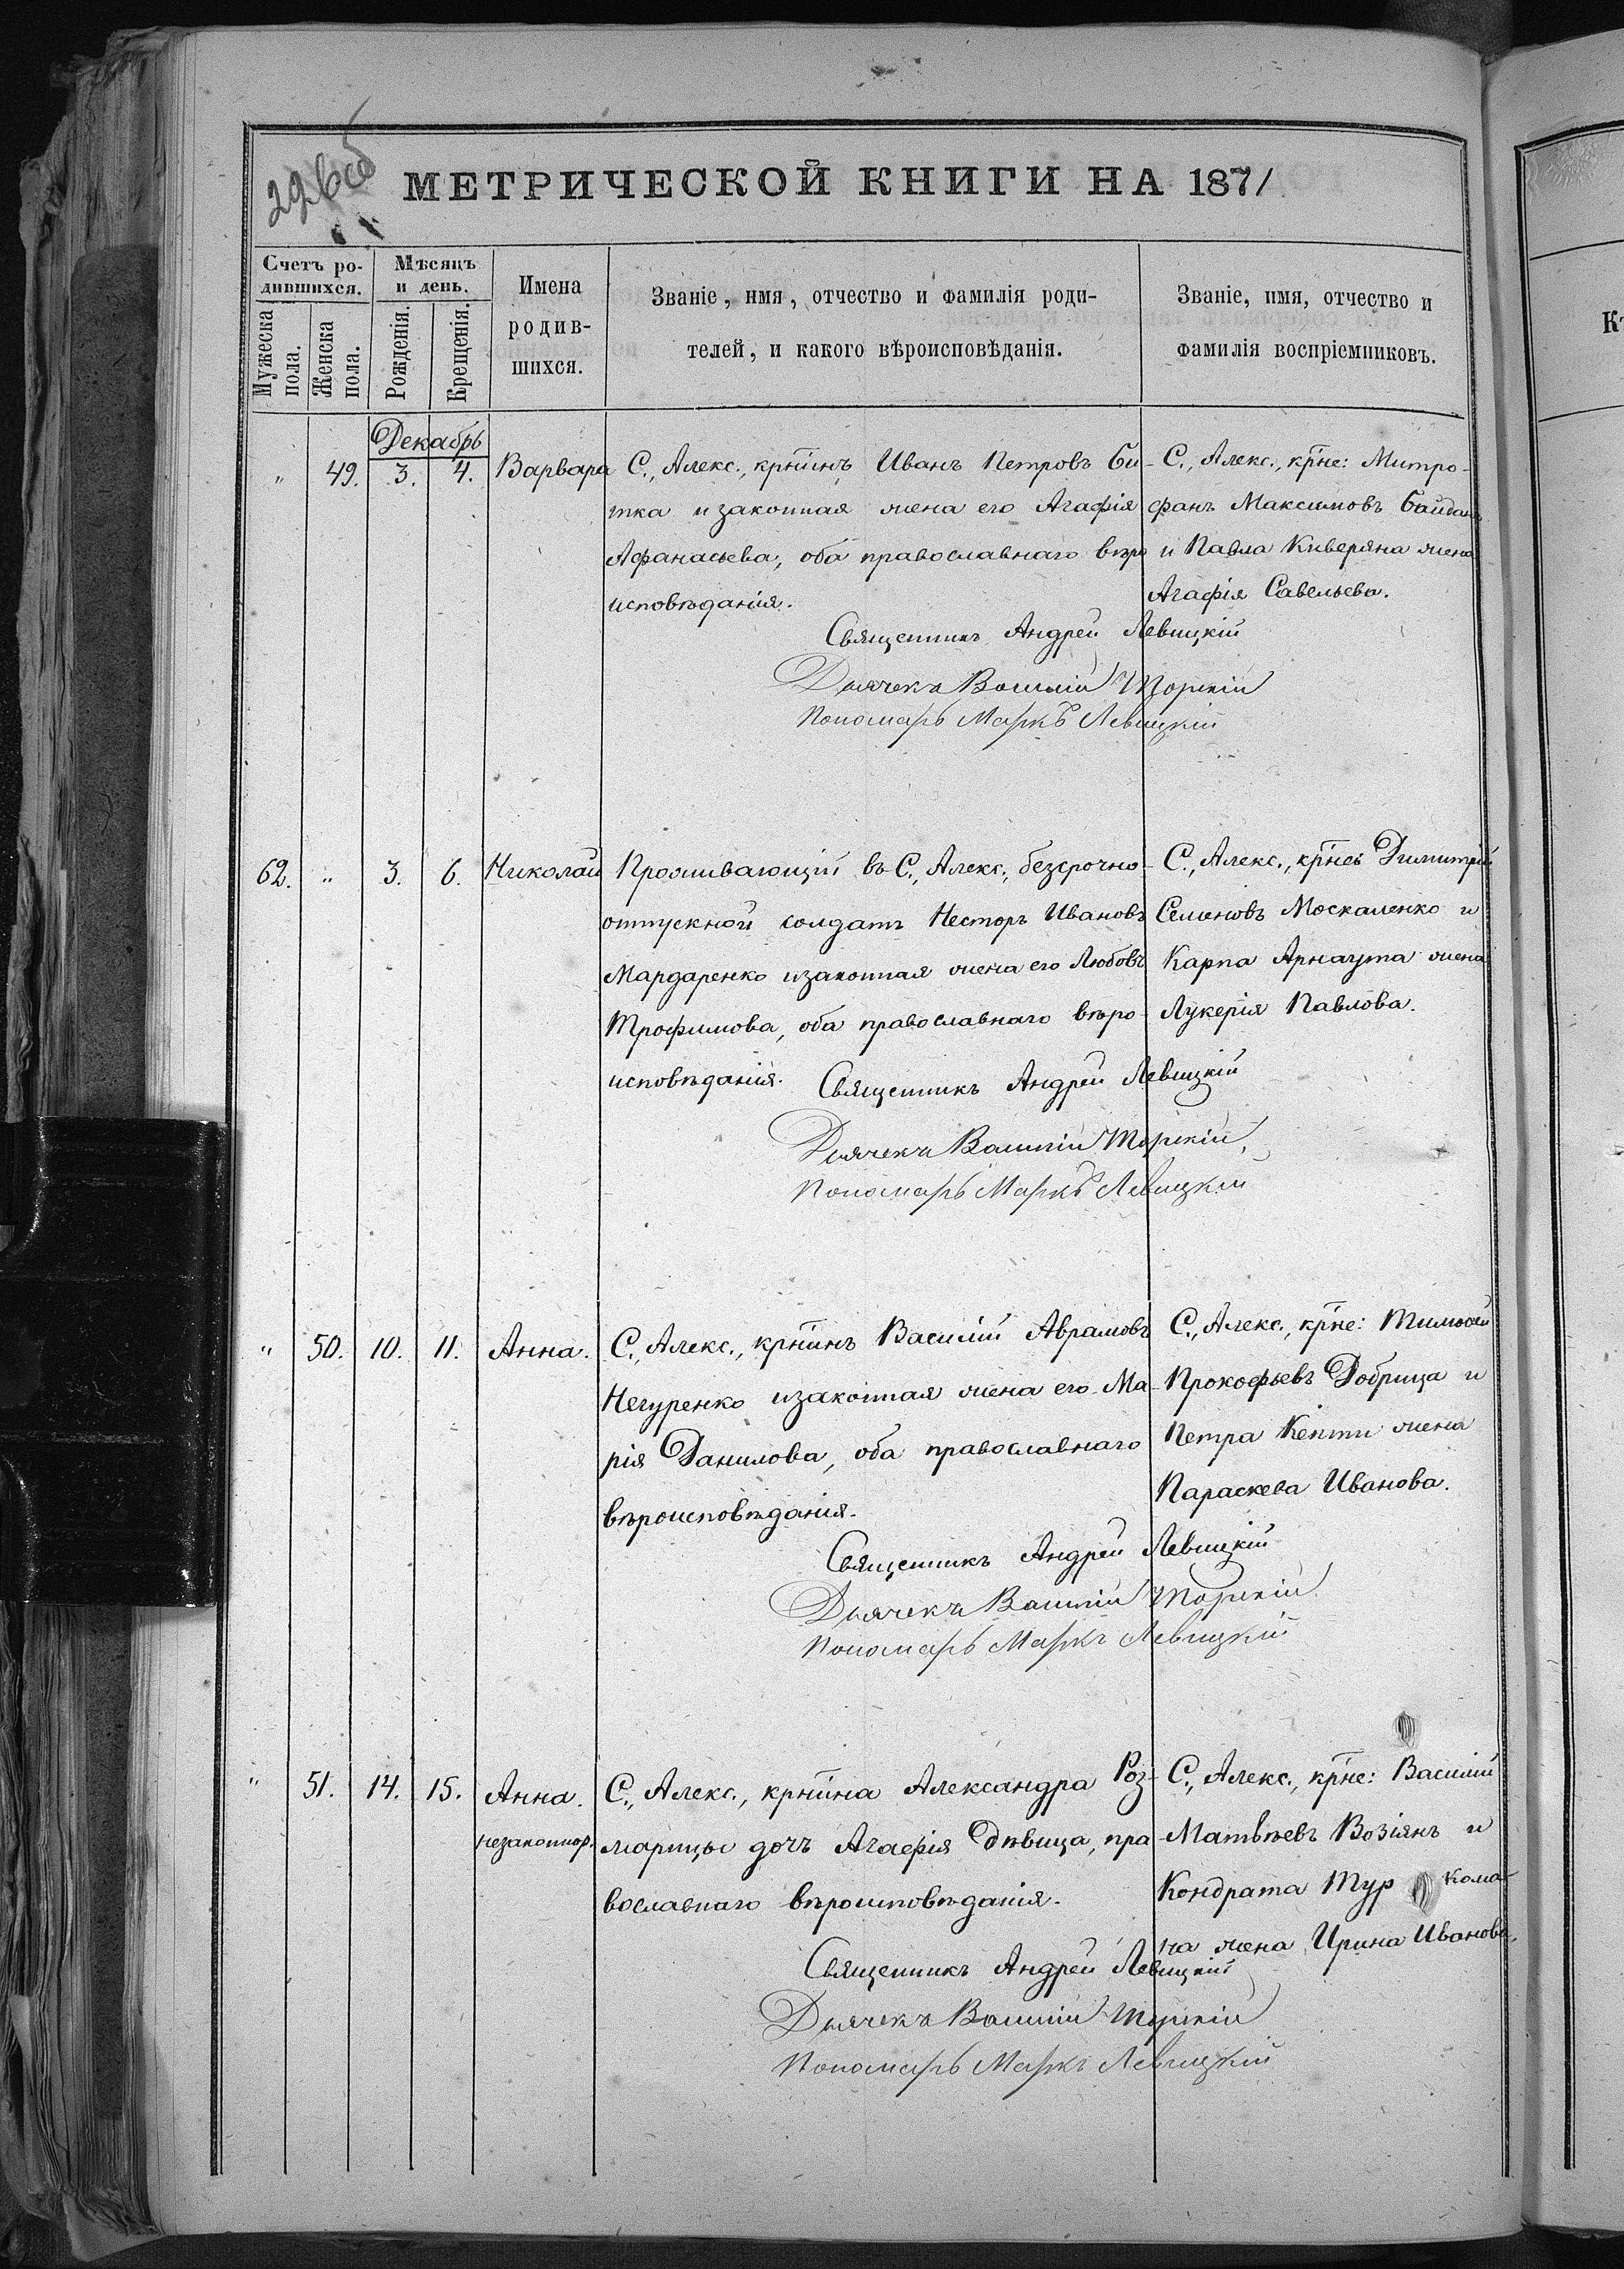 226об
МЕТРИЧЕСКОЙ КНИГИ НА 1871
Счетъ ро-
дившихся.
Мужеска
пола.
Женска
пола.
Мѣсяцъ
и день.
Рожденія.
Крещенія.
Имена
родив-
шихся.
Званіе, имя, отчество и фамилія роди-
телей, и какого вѣроисповѣданія.
Званіе, имя, отчество и
фамилія воспріемниковъ.
Декабрь
" 49. 3. 4. Варвара
С., Алекс., кр̅нинъ Иванъ Петровъ Би-
тка и законная жена его Агафія
Афанасьева, оба православнаго вѣро
исповѣданія.
С., Алекс., кр̅не: Митро-
фанъ Максимовъ Байдан
и Павла Киверяна жена
Агафія Савельева.
Священникъ Андрей Левицкій
Дьячекъ Василій Торскій
Пономарь Маркъ Левицкій
62. " 3. 6. Николай
Проживающій въ С., Алекс., безсрочно-
отпускной солдатъ Несторъ Ивановъ
Мардаренко и законная жена его Любовь
Трофимова, оба православнаго вѣро-
исповѣданія.
С., Алекс., кр̅не: Димитрій
Семеновъ Москаленко и
Карпа Арнаута жена
Лукерія Павлова.
Священникъ Андрей Левицкій
Дьячекъ Василій Торскій
Пономарь Маркъ Левицкій
" 50. 10. 11. Анна.
С., Алекс., кр̅нинъ Василій Аврамовъ
Нечуренко и законная жена его Ма-
рія Данилова, оба православнаго
вѣроисповѣданія.
С., Алекс., кр̅не: Тимоѳей
Прокофьевъ Добрица и
Петра Кепти жена
Параскева Иванова.
Священникъ Андрей Левицкій
Дьячекъ Василій Торскій
Пономарь Маркъ Левицкій
" 51. 14. 15. Анна.
незаконнор.
С., Алекс., кр̅нина Александра Роз-
марицы дочъ Агафія дѣвица, пра
вославнаго вѣроисповѣданія.
С., Алекс., кр̅не: Василій
Матвѣевъ Возіянъ и
Кондрата Тур кома-
на жена Ирина Иванова.
Священникъ Андрей Левицкій
Дьячекъ Василій Торскій
Пономарь Маркъ Левицкій